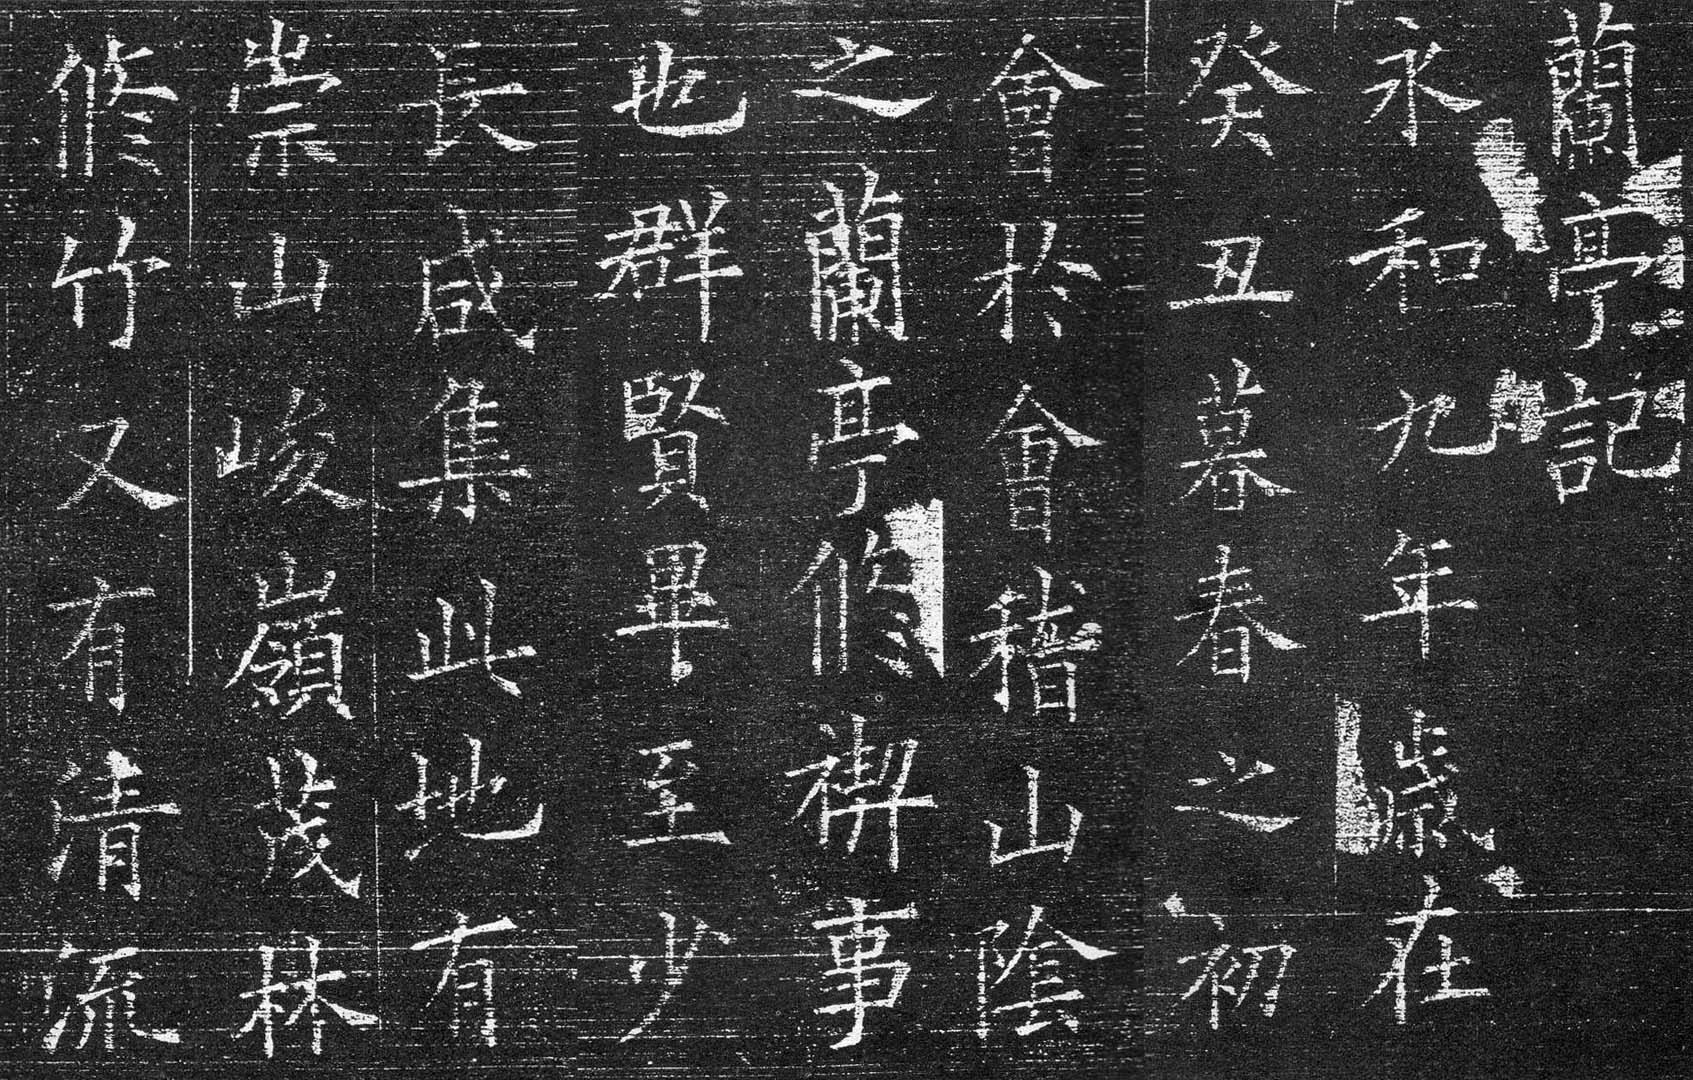 蘭亭記
永和九年歲在
癸丑暮春之初
會於會稽山陰
之蘭亭修禊事
也群賢畢至少
長咸集此地有
崇山峻嶺茂林
修竹又有清流